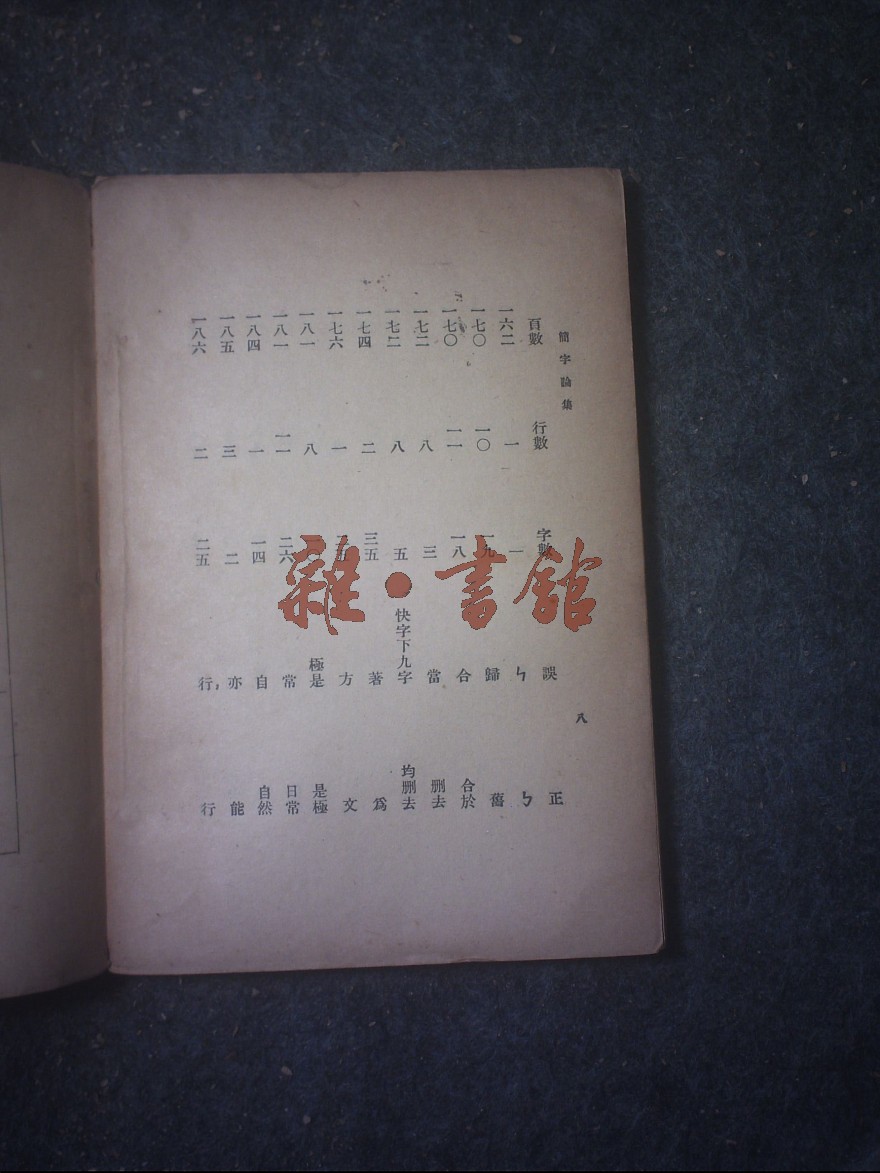 簡字論集 八
頁數 行數 字數 誤 正
一六二 一 一 ㄣ ㄅ
一七〇 一〇 一九 歸 舊
一七〇 一一 一八 合 合於
一七二 八 三 當 刪去
一七二 八 五 快字下九字 均刪去
一七四 二 三五 著 爲
一七六 一 方 文
一八一 八 極是 是極
一八一 一一 二六 常 日常
一八四 一 一四 自 自然
一八五 三 二 亦 能
一八六 二 二五 行， 行
雜●書館